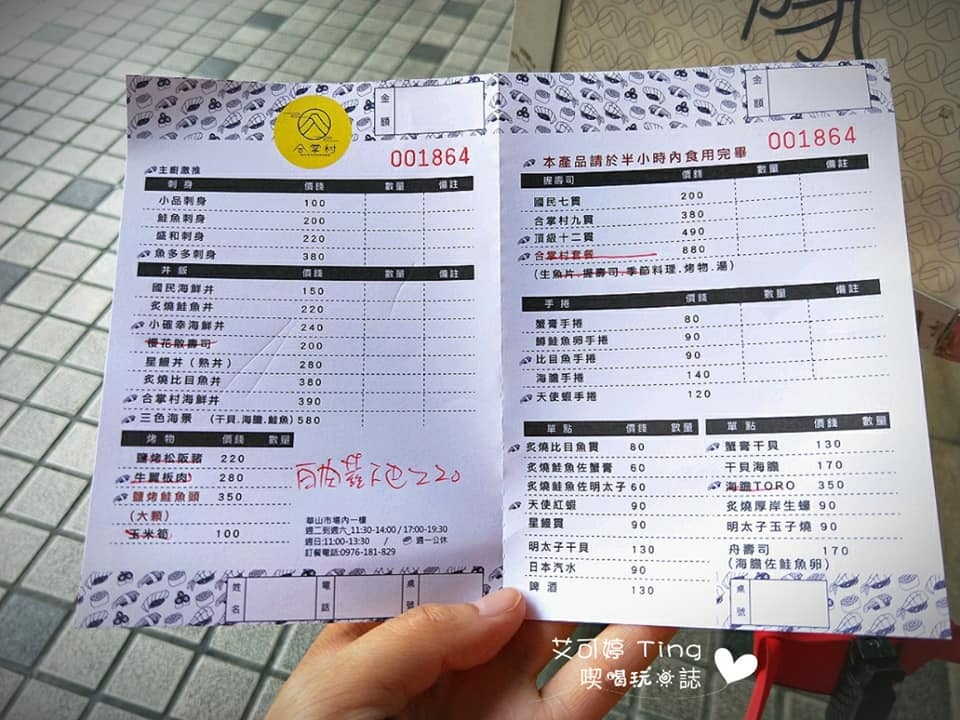 金額
合掌村
001864
主廚激推
刺身 價錢 數量 備註
小品刺身 100
鮭魚刺身 200
盛和刺身 220
魚多多刺身 380
丼飯 價錢 數量 備註
國民海鮮丼 150
炙燒鮭魚丼 220
小確幸海鮮丼 240
櫻花散壽司 200
星鰻丼(熟丼) 280
炙燒比目魚丼 380
合掌村海鮮丼 390
三色海景 (干貝.海膽.鮭魚) 580
烤物 價錢 數量
鹽烤松阪豬 220
牛翼板肉 280
鹽烤鮭魚頭 350
(大顆)
玉米筍 100
220
華山市場內一樓
週二到週六_11:30-14:00 / 17:00-19:30
週日:11:00-13:30 / 週一公休
訂餐電話:0976-181-829
姓名 電話 桌號
金額
001864
本產品請於半小時內食用完畢
握壽司 價錢 數量 備註
國民七貫 200
合掌村九貫 380
頂級十二貫 490
合掌村套餐 880
(生魚片.握壽司.季節料理.烤物.湯)
手捲 價錢 數量 備註
蟹膏手捲 80
鱒鮭魚卵手捲 90
比目魚手捲 90
海膽手捲 140
天使蝦手捲 120
單點 價錢 數量
炙燒比目魚貫 80
炙燒鮭魚佐蟹膏 60
炙燒鮭魚佐明太子 60
天使紅蝦 90
星鰻貫 90
明太子干貝 130
日本汽水 90
啤酒 130
單點 價錢 數量
蟹膏干貝 130
干貝海膽 170
海膽TORO 350
炙燒厚岸生蠔 90
明太子玉子燒 90
舟壽司 170
(海膽佐鮭魚卵)
桌號
艾可婷 Ting
喫喝玩樂誌